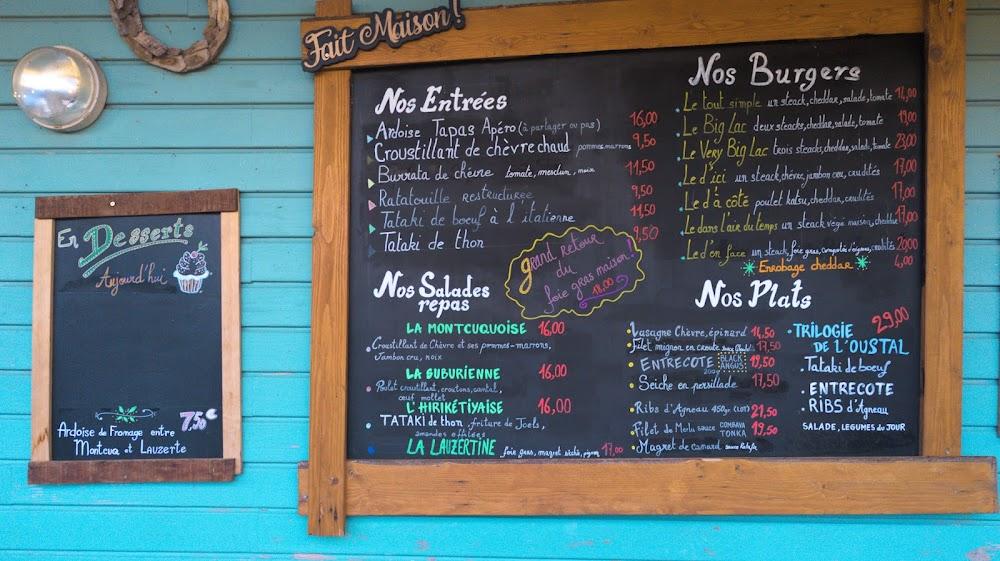 Fait Maison !
Nos Entrées
Ardoise Tapas Apéro (à partager ou pas) 16,00
Croustillant de chèvre chaud pommes, marrons 9,50
Burrata de chèvre tomate, mesclun, noix 11,50
Ratatouille restructurée 9,50
Tataki de boeuf à l'italienne 11,50
Tataki de thon 9,50
grand retour
du
foie gras maison !
18,00
Nos Salades
repas
LA MONTCUQUOISE 16,00
Croustillant de Chèvre et ses pommes-marrons,
Jambon cru, noix
LA BUBURIENNE 16,00
Poulet croustillant, croutons, cantal,
oeuf mollet
L'HIRIKÉTIYAISE 16,00
TATAKI de thon, friture de Joels,
amandes effilées
LA LAUZERTINE foie gras, magret séché, pignon 17,00
Nos Burgers
Le tout simple un steack, cheddar, salade, tomate 14,00
Le Big Lac deux steacks, cheddar, salade, tomate 19,00
Le Very Big Lac trois steacks, cheddar, salade, tomate 23,00
Le d'ici un steack, chèvre, jambon cru, crudités 17,00
Le d'à côté poulet katsu, cheddar, crudités 17,00
Le dans l'air du temps un steack végé maison, cheddar 17,00
Le d'en face un steack, foie gras, compotée d'oignons, crudités 20,00
Enrobage cheddar 4,00
Nos Plats
Lasagne Chèvre, épinard 14,50
Filet mignon en croute sauce 17,50
ENTRECOTE BLACK ANGUS 19,50
200g
Seiche en persillade 17,50
Ribs d'Agneau 450gr (env) 21,50
Filet de Merlu sauce COMBAVA TONKA 19,50
Magret de canard sauce
TRILOGIE 29,00
DE L'OUSTAL
Tataki de boeuf
ENTRECOTE
RIBS d'Agneau
SALADE, LEGUMES du JOUR
En Desserts
Aujourd'hui
7,50€
Ardoise de Fromage entre
Montcuq et Lauzerte